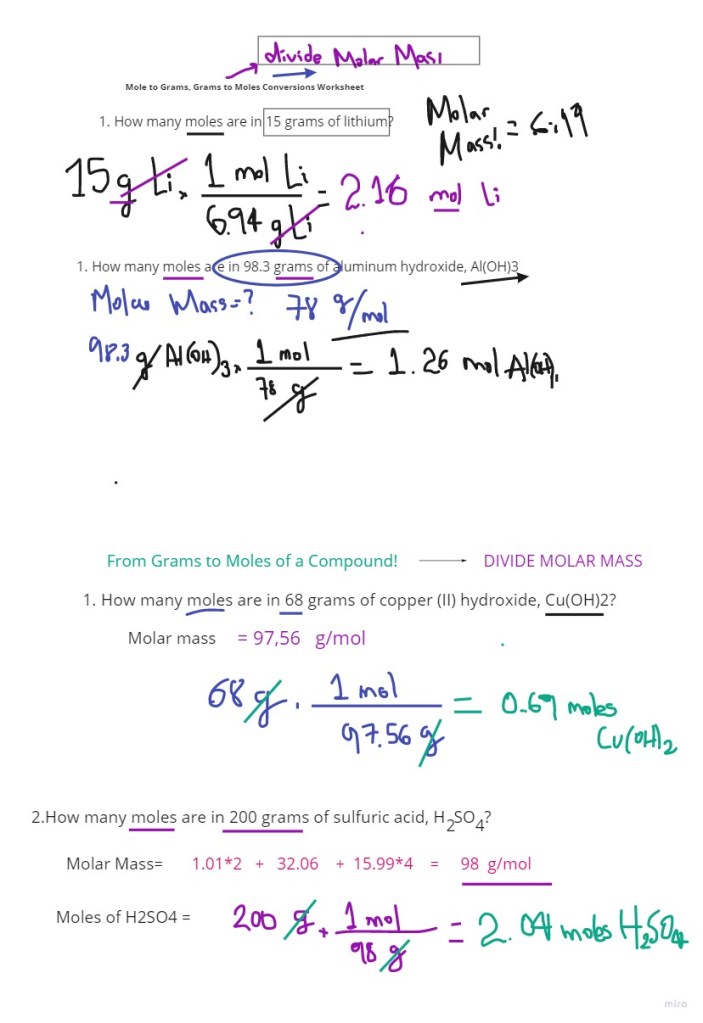 divide Molar Mass
Mole to Grams, Grams to Moles Conversions Worksheet
1. How many moles are in 15 grams of lithium?
Molar Mass! = 6.19
15 g Li × 1 mol Li / 6.94 g Li = 2.16 mol Li
1. How many moles are in 98.3 grams of aluminum hydroxide, Al(OH)3
Molar Mass=? 78 g/mol
98.3 g Al(OH)3 × 1 mol / 78 g = 1.26 mol Al(OH)3
From Grams to Moles of a Compound! → DIVIDE MOLAR MASS
1. How many moles are in 68 grams of copper (II) hydroxide, Cu(OH)2?
Molar mass = 97,56 g/mol
68 g · 1 mol / 97.56 g = 0.69 moles
Cu(OH)2
2.How many moles are in 200 grams of sulfuric acid, H2SO4?
Molar Mass= 1.01*2 + 32.06 + 15.99*4 = 98 g/mol
Moles of H2SO4 = 200 g · 1 mol / 98 g = 2.04 moles H2SO4
miro